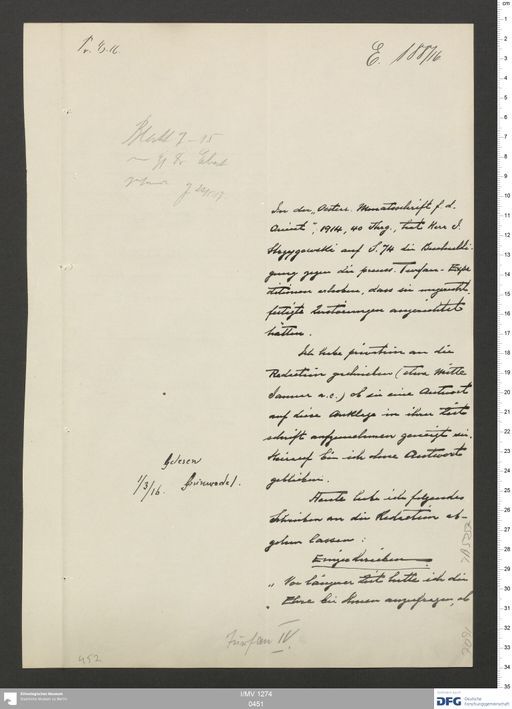 E. 188/16
Blatt 7-15
In der „Oesterr. Monatsschrift f. d.
Orient", 1914, 40 Jhrg., hat Herr J.
Strzygowski auf S. 74 die Beschuldi-
gung gegen die preuss. Turfan-Expe
ditionen erhoben, dass sie ungerecht-
fertigte Zerstörungen angerichtet
hätten.
Ich habe privatim an die
Redaction geschrieben (etwa Mitte
Januar a.c.) ob sie eine Antwort
auf diese Anklage in ihrer Zeit-
schrift aufzunehmen geneigt sei.
Hierauf bin ich ohne Antwort
geblieben.
Heute habe ich folgendes
Schreiben an die Redaction ab-
gehen lassen:
Eingeschrieben.
„Vor längerer Zeit hatte ich die
Ehre bei Ihnen anzufragen, ob
Gelesen
1/3/16. Grünwedel.
Turfan IV.
452
Ethnologisches Museum
Staatliche Museen zu Berlin
I/MV 1274
0451
DFG Deutsche
Forschungsgemeinschaft